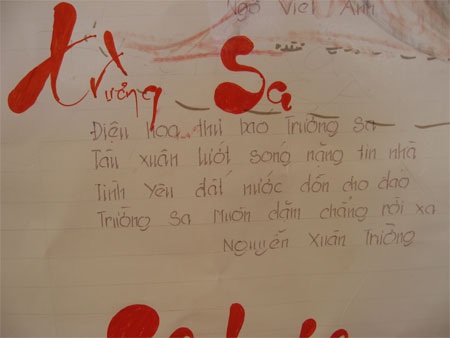 Ngô Việt Anh
Trường Sa
Điệu hoa thư bao Trường Sa
Tàu xuân lướt sóng nặng tin nhà
Tình yêu đất nước dồn cho đảo
Trường Sa Muôn dặm chẳng rời xa
Nguyễn Xuân Trường